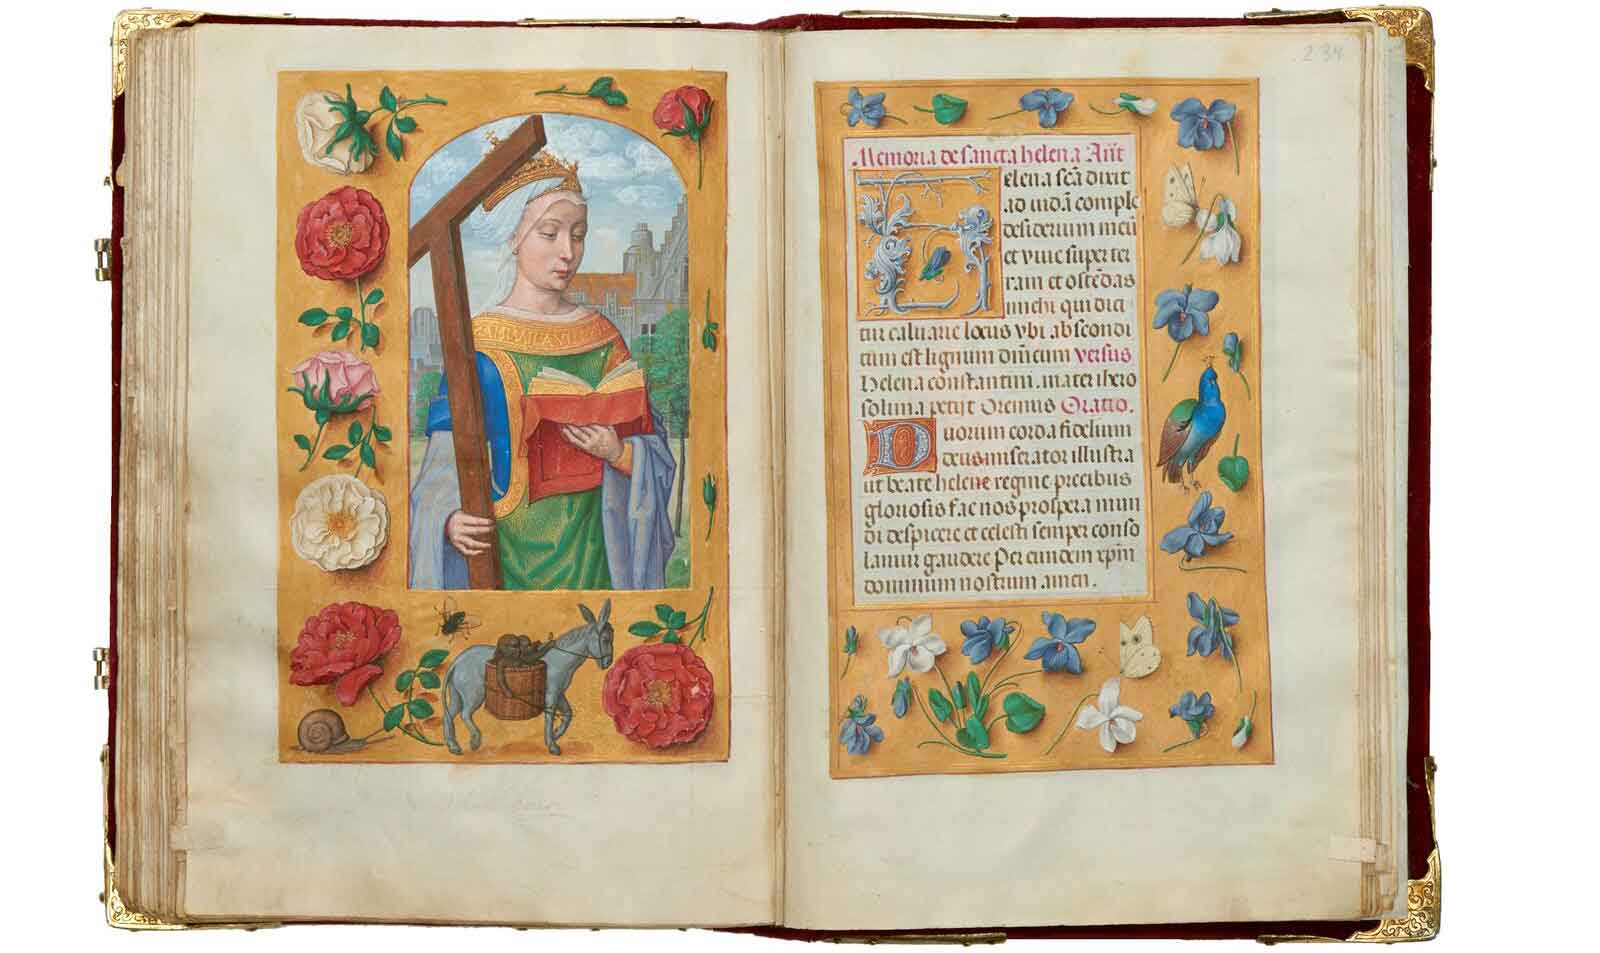 234
Memoria de sancta helena Añt
elena sc̃a dixit
ad iudã comple
desiderium meũ
et viue super ter
ram et ostẽdas
michi qui dici
tur caluarie locus vbi abscondi
tum est lignum dm̃cum versus
Helena constantini mater ihero
solima petijt Oremus Oratio.
Duorum corda fidelium
deus miserator illustra
ut beate helene regine precibus
gloriosis fac nos prospera mun
di despicere et celesti semper conso
lamur gaudere Per eundem xp̃m
dominum nostrum amen.